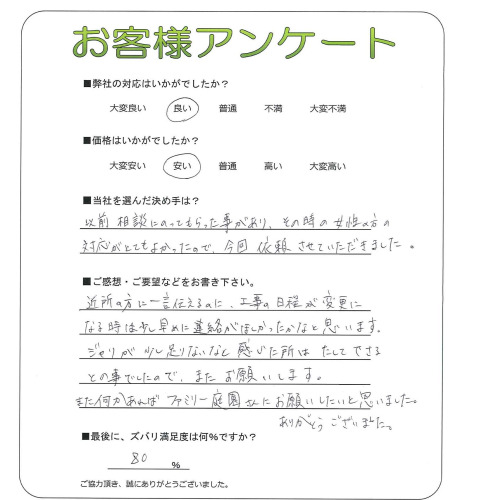 お客様アンケート
■弊社の対応はいかがでしたか？
大変良い 良い 普通 不満 大変不満
■価格はいかがでしたか？
大変安い 安い 普通 高い 大変高い
■当社を選んだ決め手は？
以前 相談にのってもらった事があり、その時の女性の方の
対応がとてもよかったので、今回 依頼 させていただきました。
■ご感想・ご要望などをお書き下さい。
近所の方に一言伝えるのに、工事の日程が変更に
なる時は少し早めに連絡がほしかったかなと思います。
ジャリが少し足りないなと感じた所はたしてできる
との事でしたので、またお願いします。
また何かあればファミリー庭園さんにお願いしたいと思いました。
ありがとうございました。
■最後に、ズバリ満足度は何％ですか？
80 ％
ご協力頂き、誠にありがとうございました。